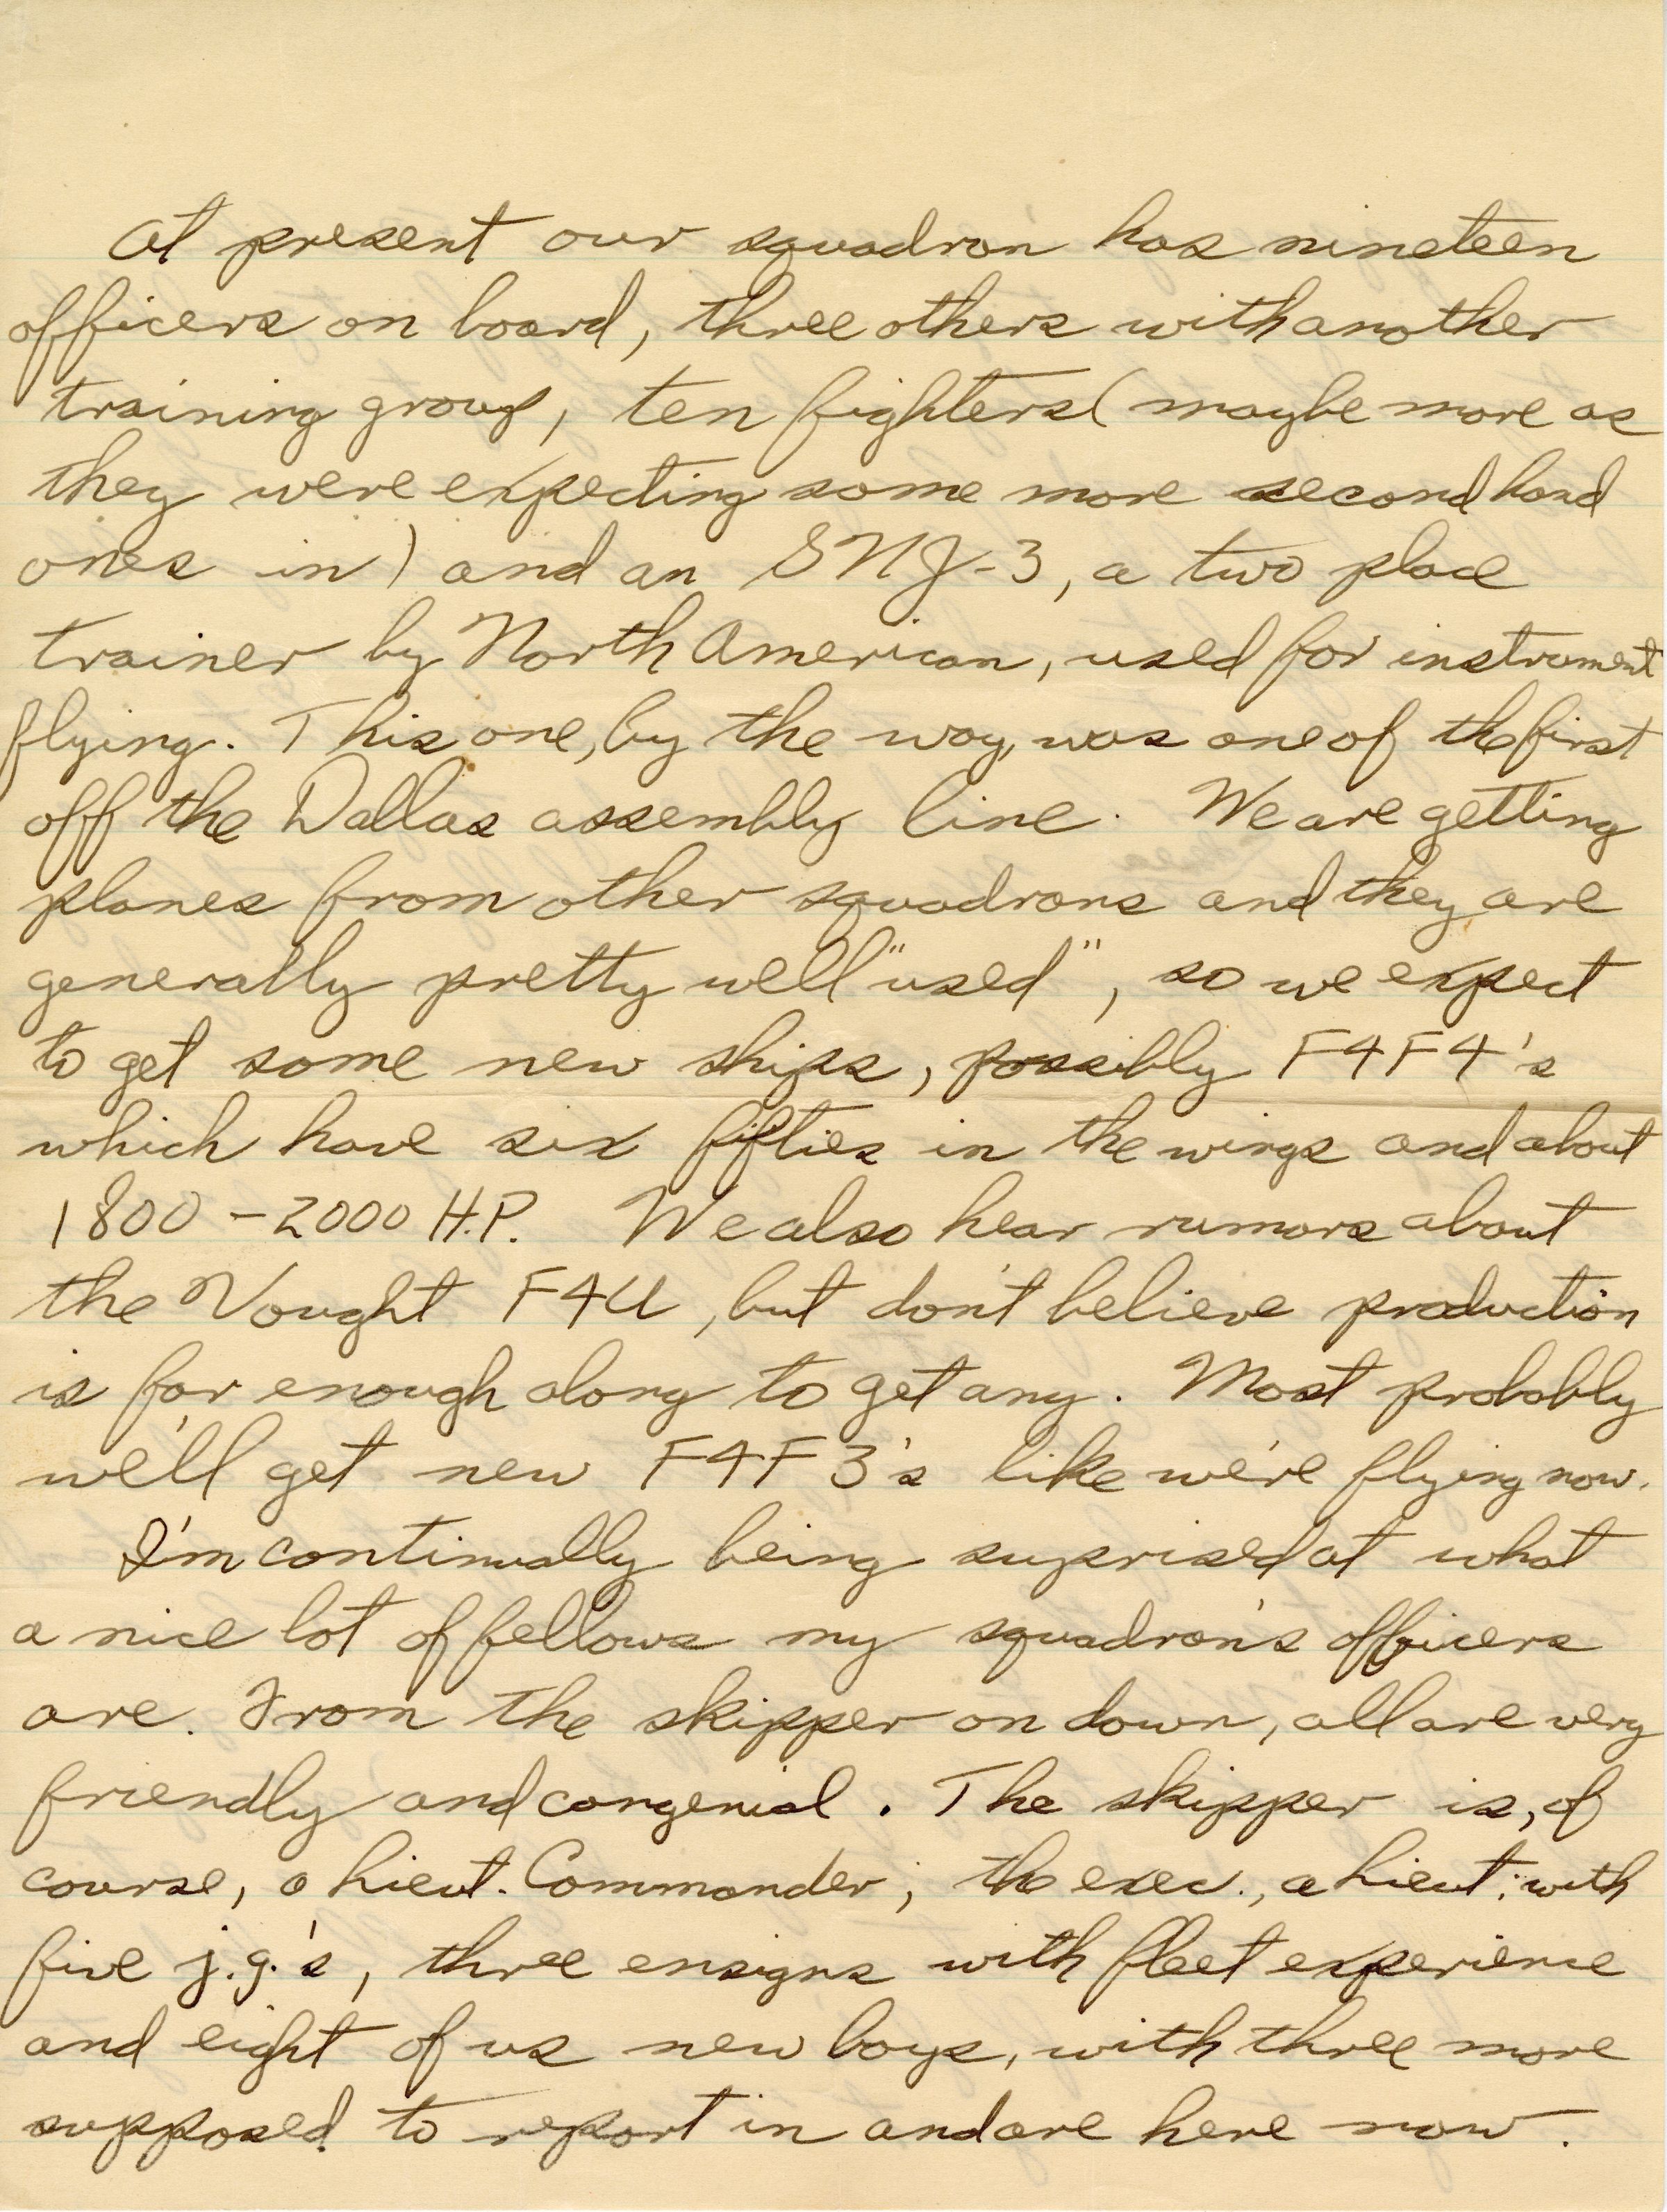 At present our squadron has nineteen
officers on board, three others with another
training group, ten fighters (maybe more as
they were expecting some more second hand
ones in) and an SNJ-3, a two place
trainer by North American, used for instrument
flying. This one, by the way, was one of the first
off the Dallas assembly line. We are getting
planes from other squadrons and they are
generally pretty well "used", so we expect
to get some new ships, possibly F4F4's
which have six fifties in the wings and about
1800-2000 H.P. We also hear rumors about
the Vought F4U, but don't believe production
is far enough along to get any. Most probably
we'll get new F4F3's like we're flying now.
I'm continually being suprised at what
a nice lot of fellows my squadron's officers
are. From the skipper on down, all are very
friendly and congenial. The skipper is, of
course, a Lieut. Commander; the exec., a Lieut; with
five j.g.'s, three ensigns with fleet experience
and eight of us new boys, with three more
supposed to report in and are here now.